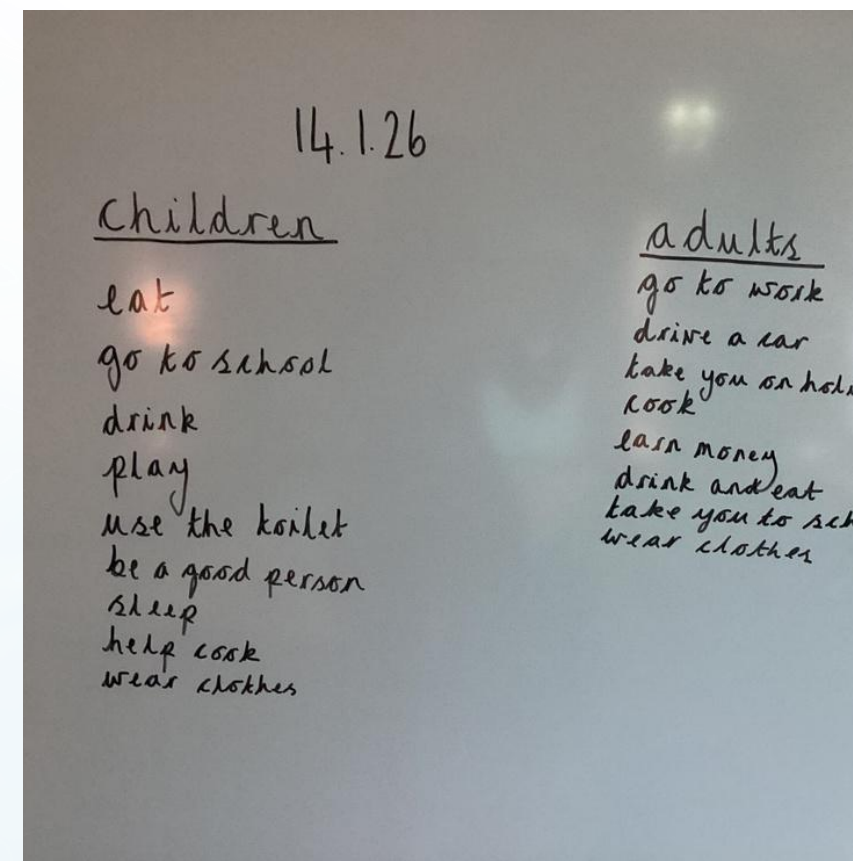 14.1.26
children
eat
go to school
drink
play
use the toilet
be a good person
sleep
help cook
wear clothes
adults
go to work
drive a car
take you on
cook
earn money
drink and eat
take you to
wear clothes